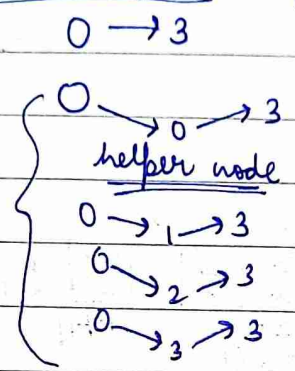 0 → 3
0 → 0 → 3
helper node
0 → 1 → 3
0 → 2 → 3
0 → 3 → 3